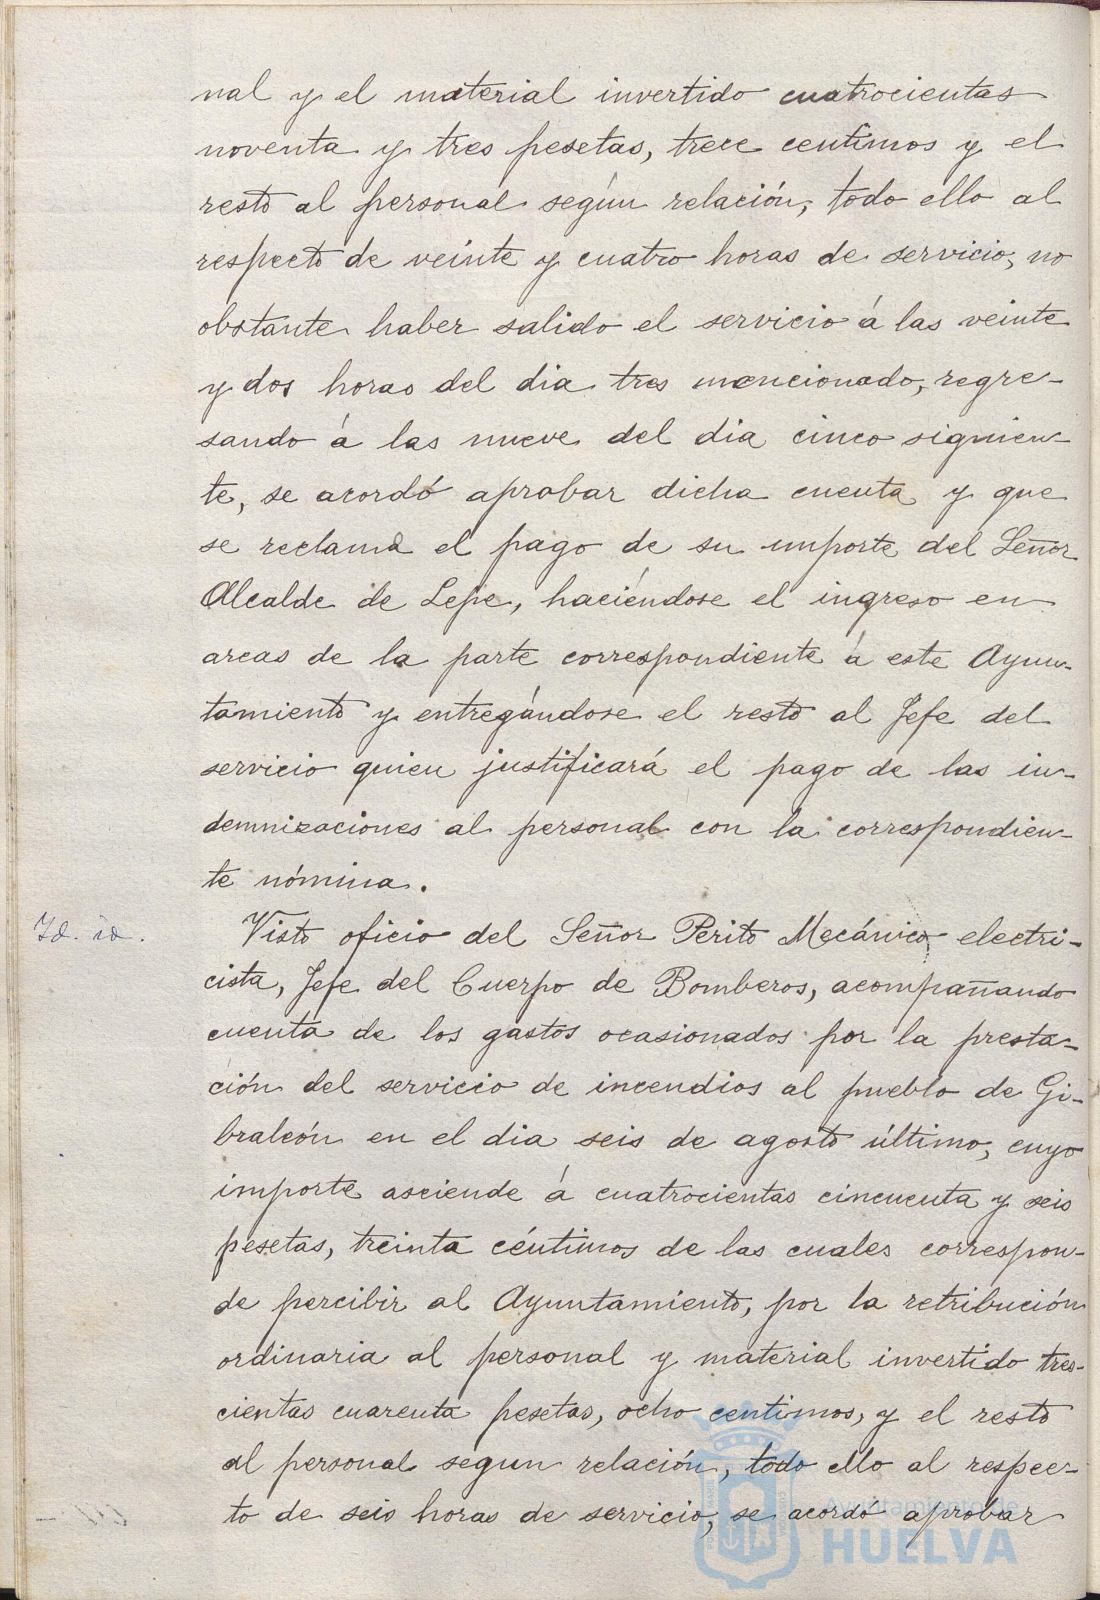 nal y el material invertido cuatrocientas
noventa y tres pesetas, trece centimos y el
resto al personal según relación, todo ello al
respecto de veinte y cuatro horas de servicio, no
obstante haber salido el servicio á las veinte
y dos horas del dia tres mencionado, regre-
sando á las nueve del dia cinco siguien-
te, se acordó aprobar dicha cuenta y que
se reclama el pago de su importe del Señor
Alcalde de Lepe, haciéndose el ingreso en
arcas de la parte correspondiente á este Ayun-
tamiento y entregándose el resto al Jefe del
servicio quien justificará el pago de las in-
demnizaciones al personal con la correspondien-
te nómina.
Id. id.
Visto oficio del Señor Perito Mecánico electri-
cista, Jefe del Cuerpo de Bomberos, acompañando
cuenta de los gastos ocasionados por la presta-
ción del servicio de incendios al pueblo de Gi-
braleón en el dia seis de agosto último, cuyo
importe asciende á cuatrocientas cincuenta y seis
pesetas, treinta céntimos de las cuales correspon-
de percibir al Ayuntamiento, por la retribución
ordinaria al personal y material invertido tres-
cientas cuarenta pesetas, ocho centimos, y el resto
al personal segun relación, todo ello al respec-
to de seis horas de servicio, se acordó aprobar
Ayuntamiento de
HUELVA